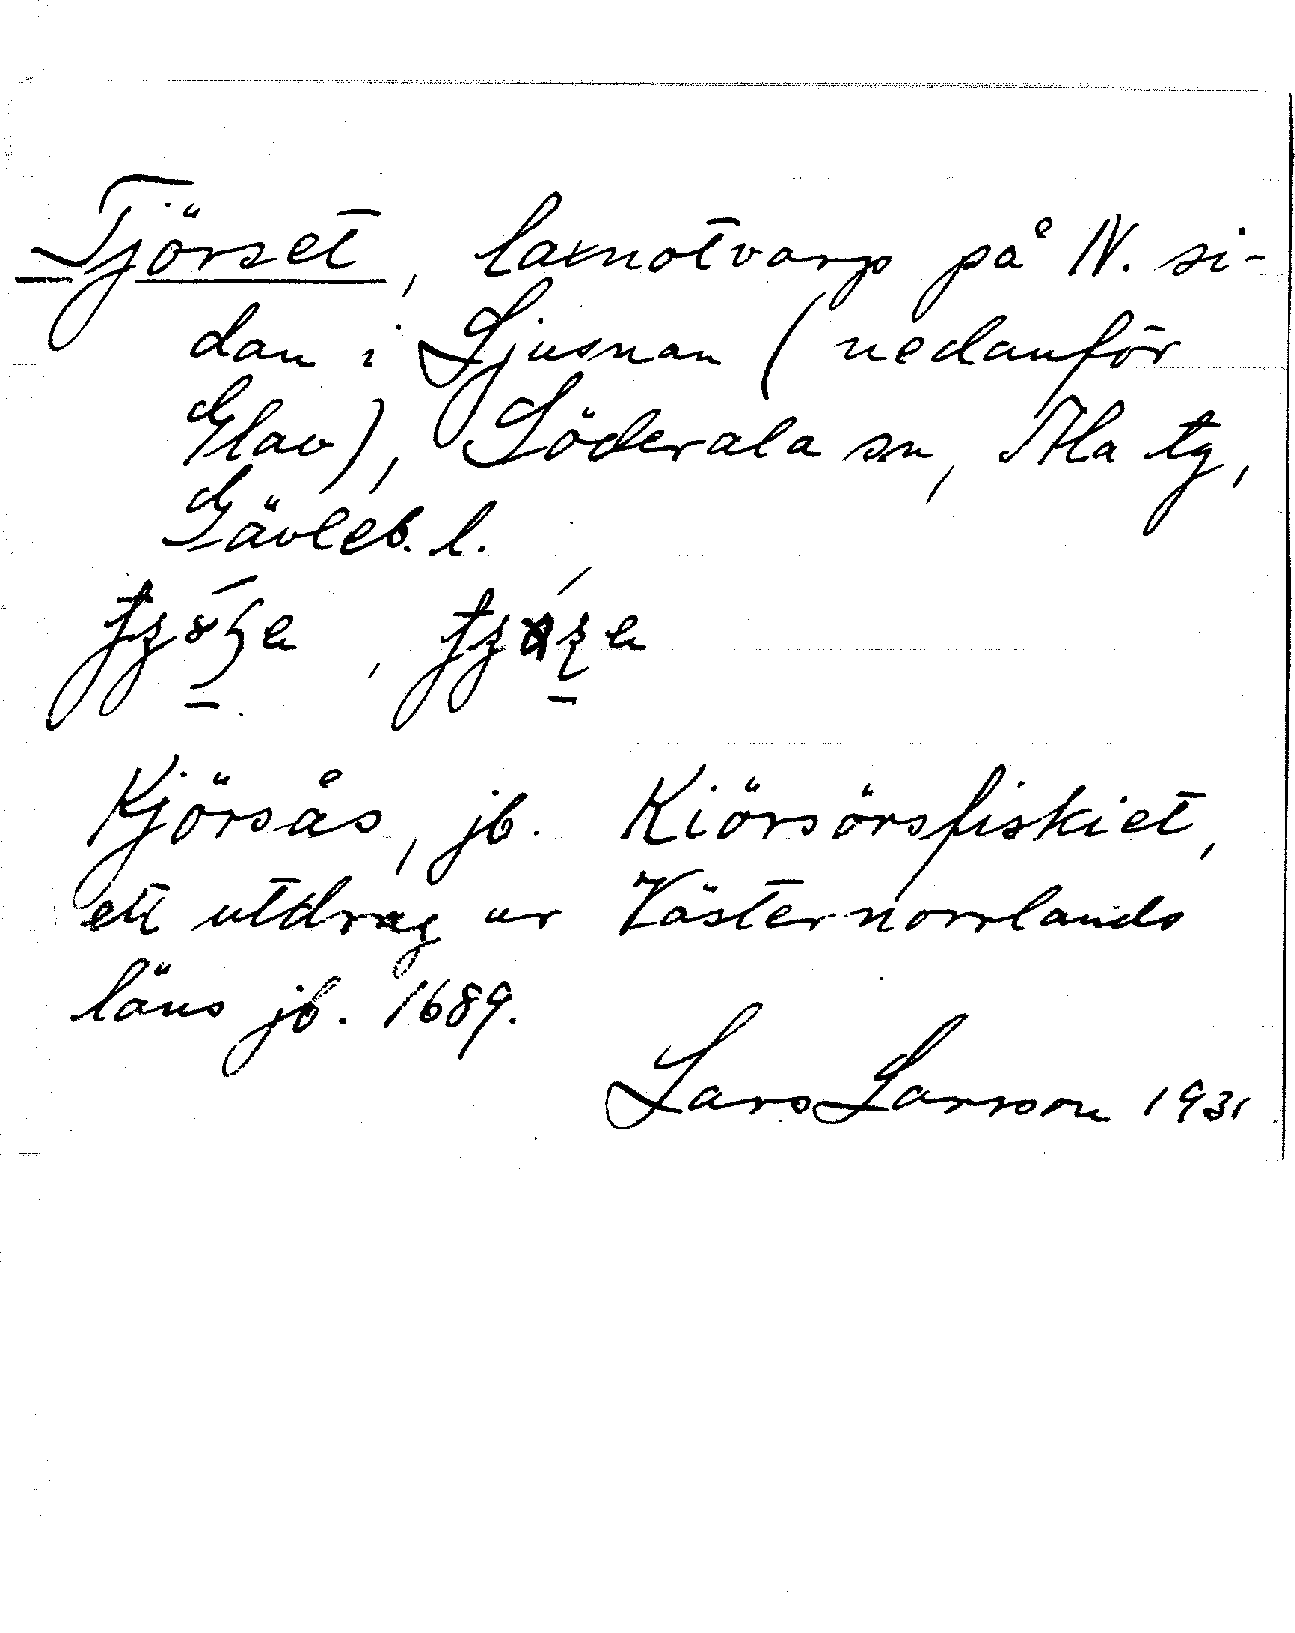 Tjörset, laxnotvarp på N. si-
dan i Ljusnan (nedanför
Glav), Söderala sn, Ala tg,
Gävleb. l.
Kjörsås, jb. Kiörsörsfiskiet,
ett utdrag ur Västernorrlands
läns jb. 1689.
Lars Larsson 1931